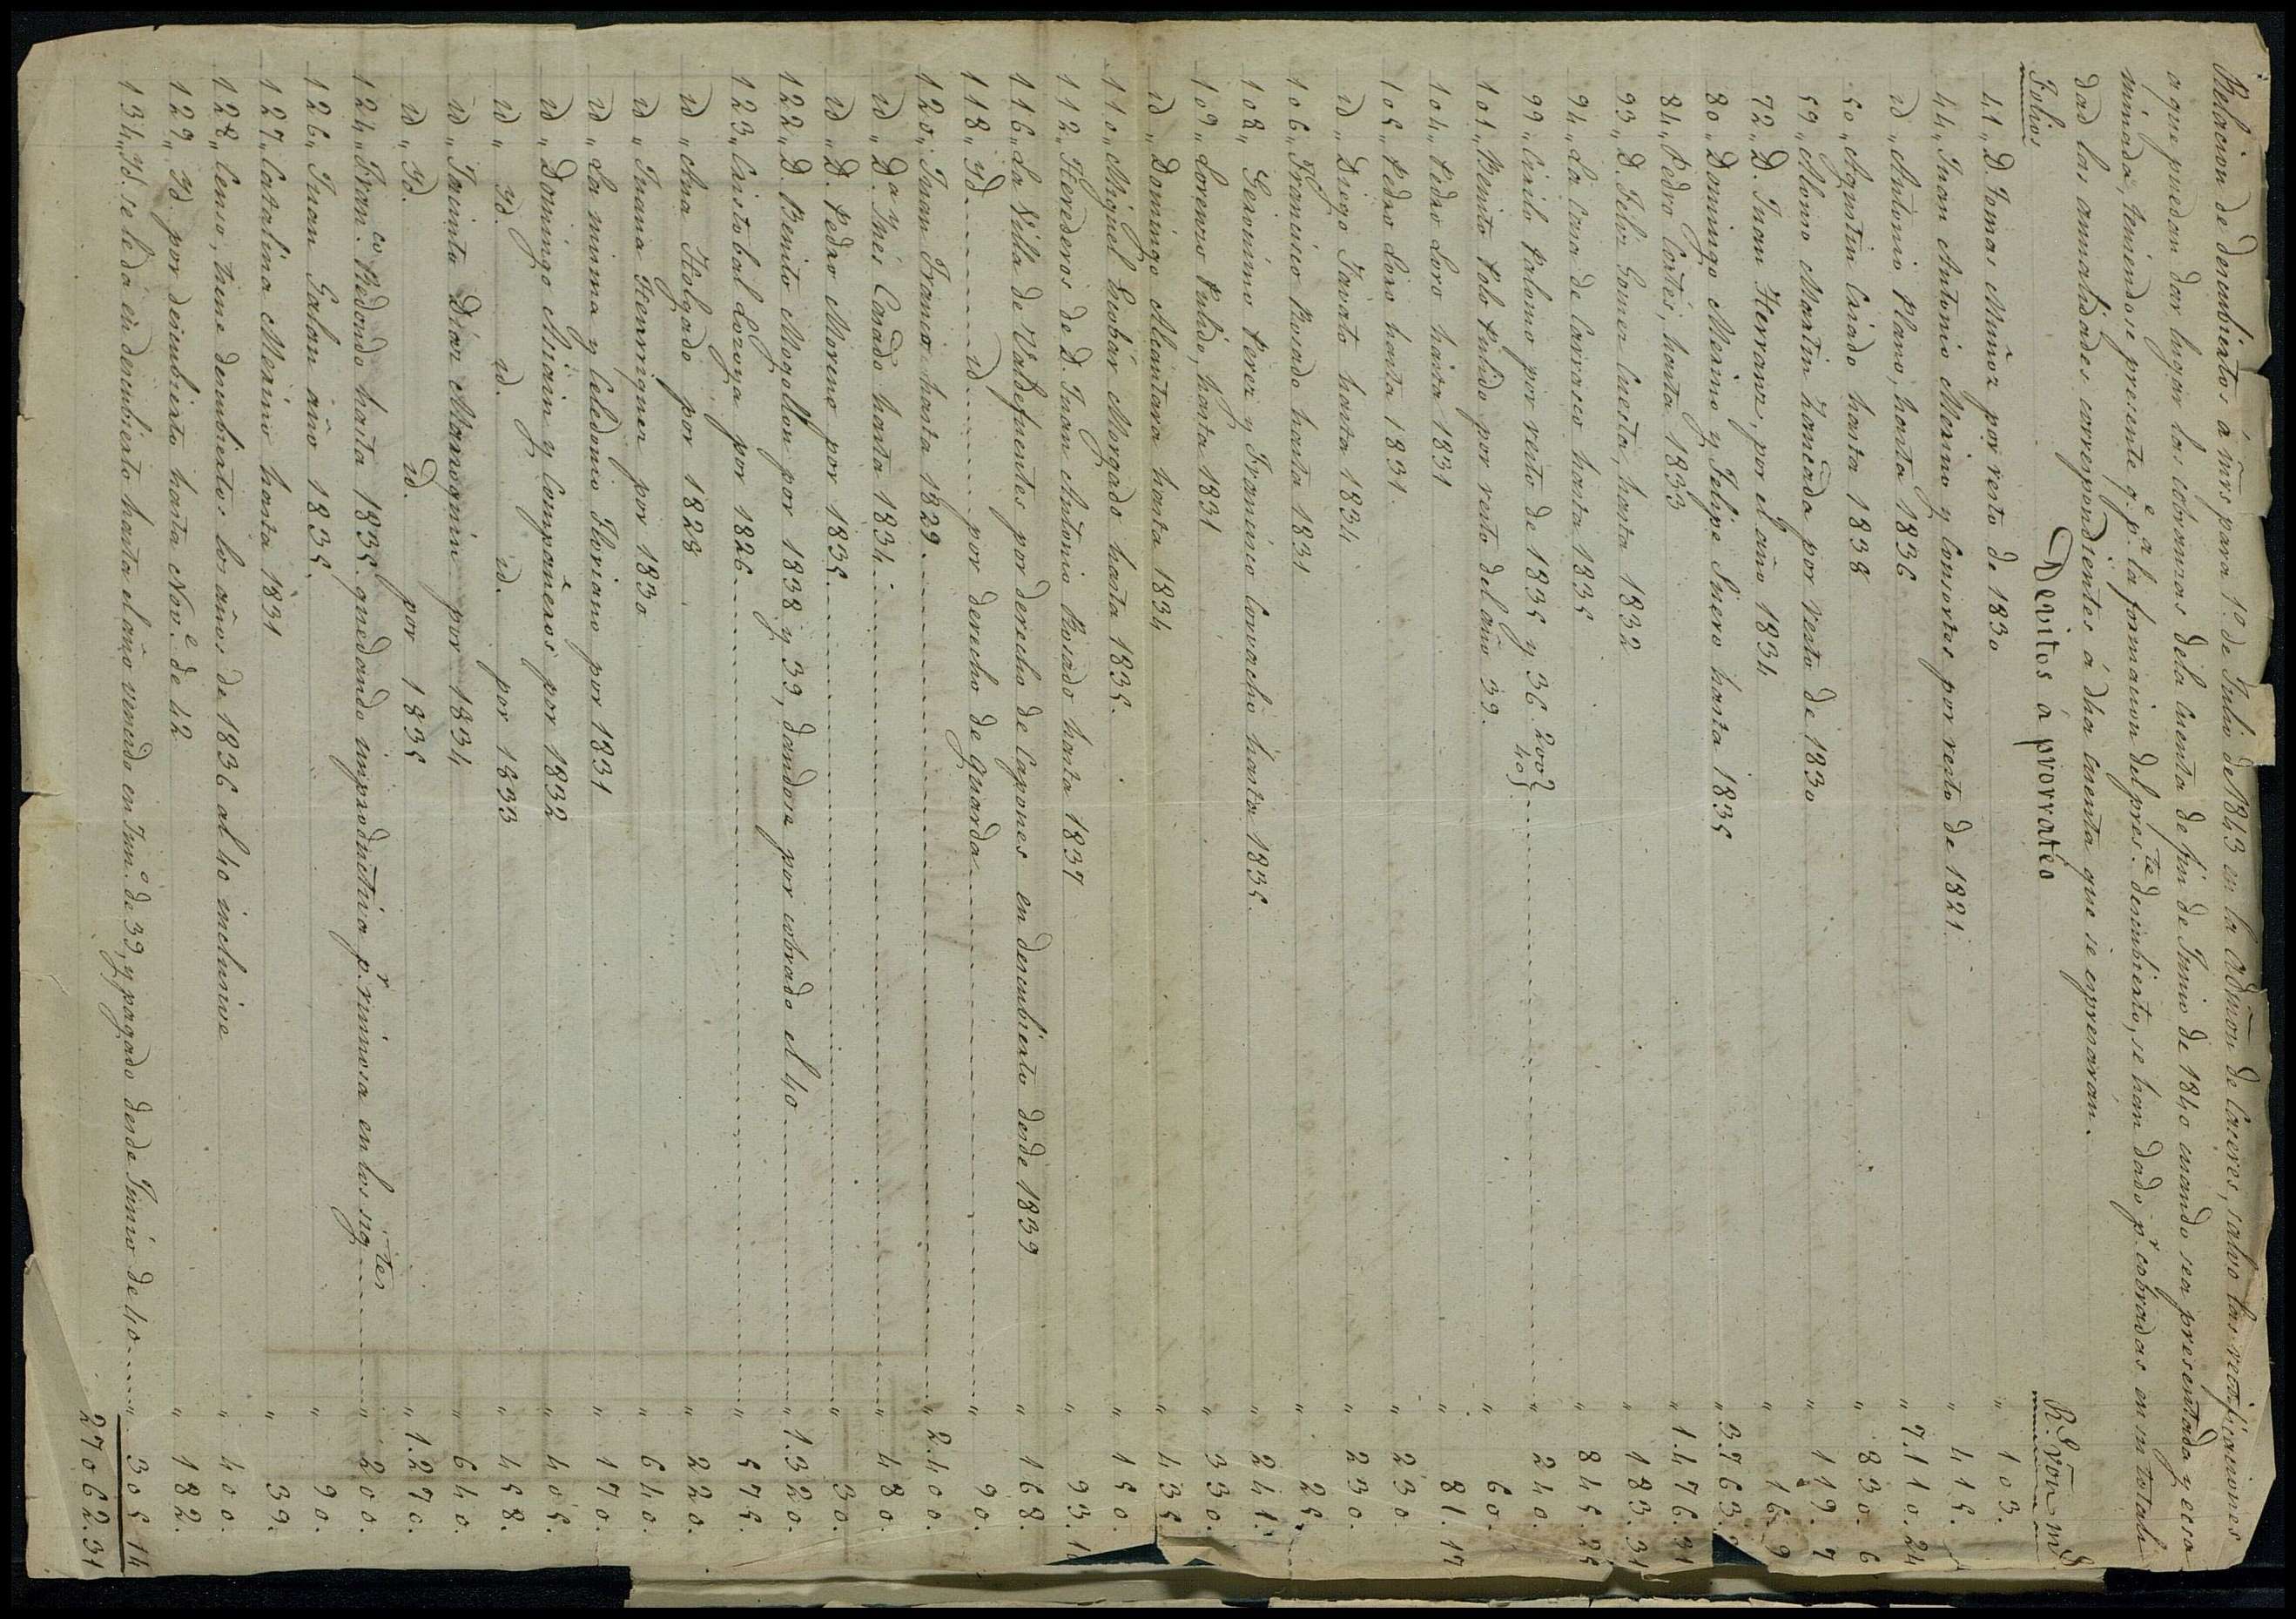 Relacion de descubiertos á mrs para 1º. de Julio de 1843 en la admon de Caceres, salvo las rectificaciones
a que puedan dar lugar las columnas dela cuenta de fin de Junio de 1840 cuando sea presentada y exa
minada, teniendose presente q.e p.a la formacion del pres.te descubierto, se han dado p.r cobradas en su totali
dad las anualidades correspondientes á dha cuenta que se expresaran.
Folios Devitos á prorratéo R.s von m.s
41,, D. Tomas Muñoz por resto de 1830 ,, 103.
44,, Juan Antonio Merino y Consortes por resto de 1821 ,, 415.
id,, Antonio Plano, hasta 1836 ,, 7.110.24
50,, Agustin Criado hasta 1838 ,, 830.6
59,, Alonso Martin Cañada por resto de 1830 ,, 119.7
72,, D. Juan Herranz, por el año 1834 ,, 16.9
80,, Domingo Merino y Felipe Suero hasta 1835 ,, 3.763.
84,, Pedro Cortés, hasta 1833 ,, 1.476.31
93,, D. Felix Gomez Cuesta, hasta 1832 ,, 183.31
94,, La Casa de Carrasco hasta 1835 ,, 845.25
99,, Cirilo Palomo por resto de 1835 y 36. 200 40} ,, 240.
101,, Benito Polo Pulido por resto del año 39. ,, 60.
104,, Pedro Loro hasta 1831 ,, 81.17
105,, Pedro Loro hasta 1831. ,, 230.
id,, Diego Tovato hasta 1834 ,, 230.
106,, Francisco Rosado hasta 1831 ,, 25.
108,, Geronimo Perez y Francisco Corvacho hasta 1835. ,, 241.
109,, Lorenzo Pulido, hasta 1831 ,, 330.
id,, Domingo Alcantara hasta 1834 ,, 435.
110,, Miguel Escobar Morgado hasta 1835. ,, 150.
112,, Herederos de D. Juan Antonio Rosado hasta 1837 ,, 93.1
116,, La Villa de Valdefuentes por derecho de Capones en descubierto desde 1839 ,, 168.
118,, Yd. id. por derecho de Guarda ,, 90.
120,, Juan Franco hasta 1829 ,, 2.400.
id,, Da. Ynés Conᵭo hasta 1834 ,, 480.
id,, D. Pedro Moreno por 1835 ,, 30.
122,, D. Benito Mogollon por 1838 y 39, dandose por cobrado el 40 ,, 1.320.
123,, Cristobal Lozoya por 1826 ,, 575.
id,, Ana Holgado por 1828 ,, 220.
id,, Juana Henrriquez por 1830 ,, 640.
id,, La misma y Celedonio Floriano por 1831 ,, 170.
id,, Domingo Misian y Compañeros por 1832 ,, 405.
id,, Yd. id. id. por 1833 ,, 458.
id,, Jacinta Diaz Marroquin por 1834 ,, 640.
id,, Yd. id. por 1835 ,, 1.270.
124,, Fran.co Redondo hasta 1835 quedando improductiva p.r viciosa en los sig.tes ,, 200.
126,, Juan Galan año 1835. ,, 90.
127,, Catalina Merino hasta 1831 ,, 39.
128,, Censo, tiene descubiertos los años de 1836 al 40 inclusive ,, 400.
129,, Yd. por descubierto hasta Nov.e de 42 ,, 182.
134,, Yd. se le da en descubierto hasta el año vencido en Jun.o de 39, y pagado desde Junio de 40 ,, 305 14
27062.31